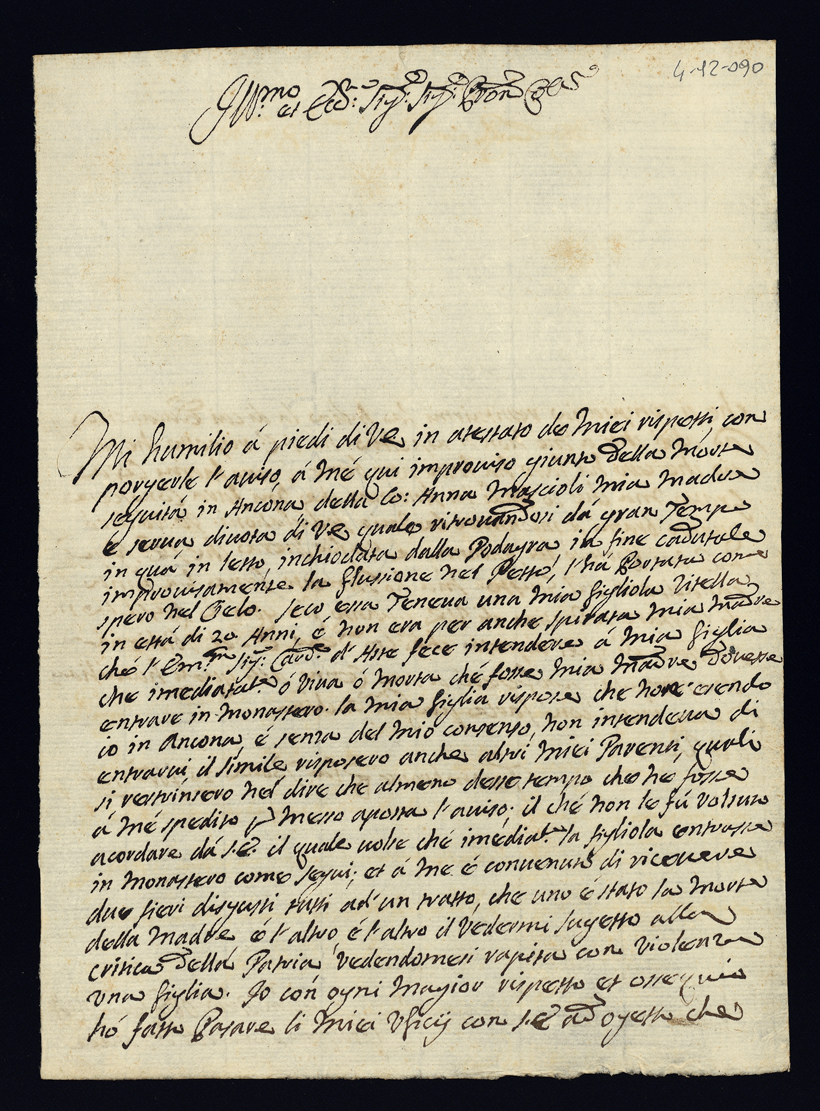 4-12-090
Ill.mo et Ecc.mo Sig.r Sig.r Pron Col.mo
Mi humilio á piedi di VE, in atestato de Miei rispetti, con
porgerle l'auiso, á Mé qui improuiso giunto della Morte
seguita in Ancona, della Co: Anna Mascioli Mia Madre
e serua diuota di VE quale ritrouandosi dá gran Tempo
in quá in letto, inchiodata dalla Podagra in fine cadutale
improuisamente la flussione nel Petto, l'há Portata come
spero nel Cielo. Seco era Teneua una Mia figliola Zitella
in età di 20 Anni, é non era per anche spirata Mia Madre
ché l'Em.mo Sig.r Card. d'Aste fece intendere á Mia figlia
che imediatat.e ó Viua ó Morta ché fosse Mia Madre Douesse
entrare in Monastero. la Mia figlia rispose che non essendo
io in Ancona, é senza del Mio consenso, non intendeua di
entrarui, il simile risposero anche altri Miei Parenti, quali
si restrinsero nel dire che almeno desse tempo che ne fosse
á Mé spedito p Messo aposta l'auiso. il ché non le fú Voluto
acordare dá S.E. il quale uolse ché imediat.e la figliola entrasse
in Monastero come seguí; et á Me é conuenuto di riceuere
due fieri disgusti tutti ad'un tratto, che uno é stato la Morte
della Madre é l'altro é l'altro il Vedermi sugetto alla
critica della Patria Vedendomesi rapita con Violenza
vna figlia. Io con ogni Magior rispetto et ossequio
hó fatto Pasare li Miei Vficij con S.E. ad ogetto che